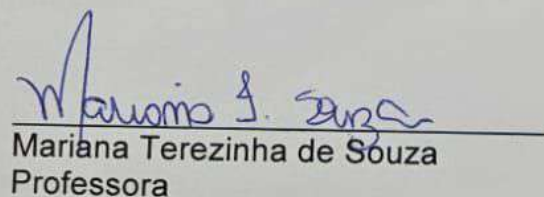 Mariana T. Souza
Mariana Terezinha de Souza
Professora